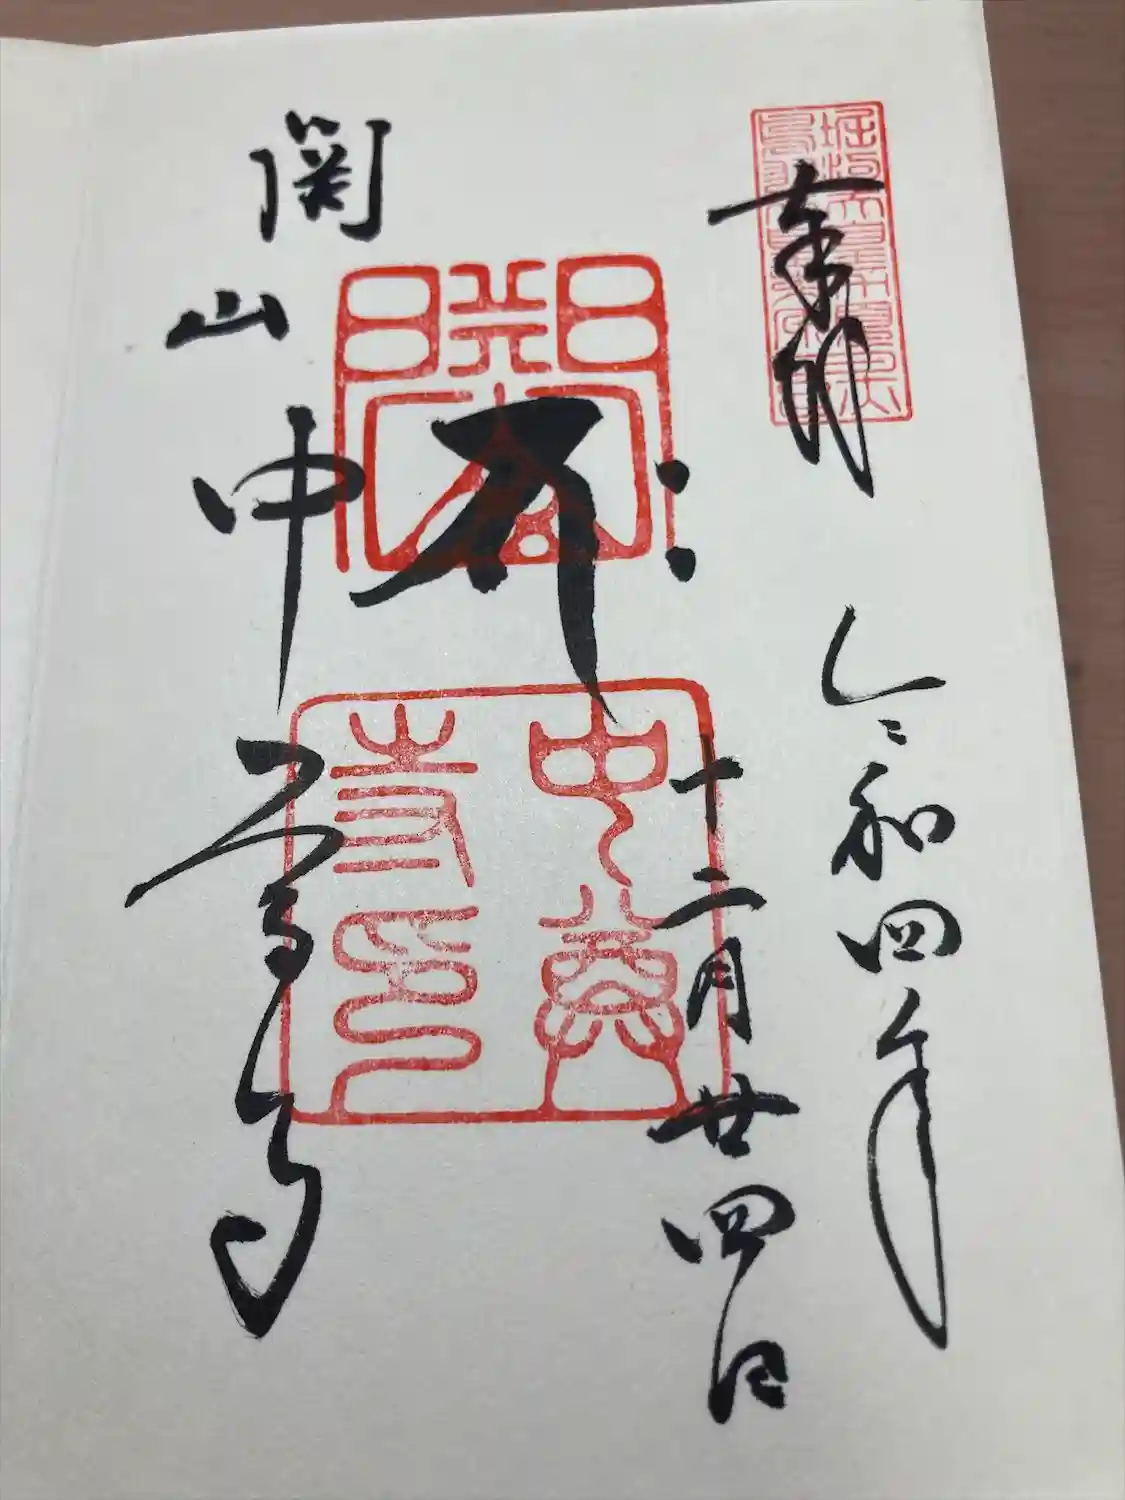 奉拝
令和四年
十二月廿四日
関山中尊寺
關山
中尊寺印